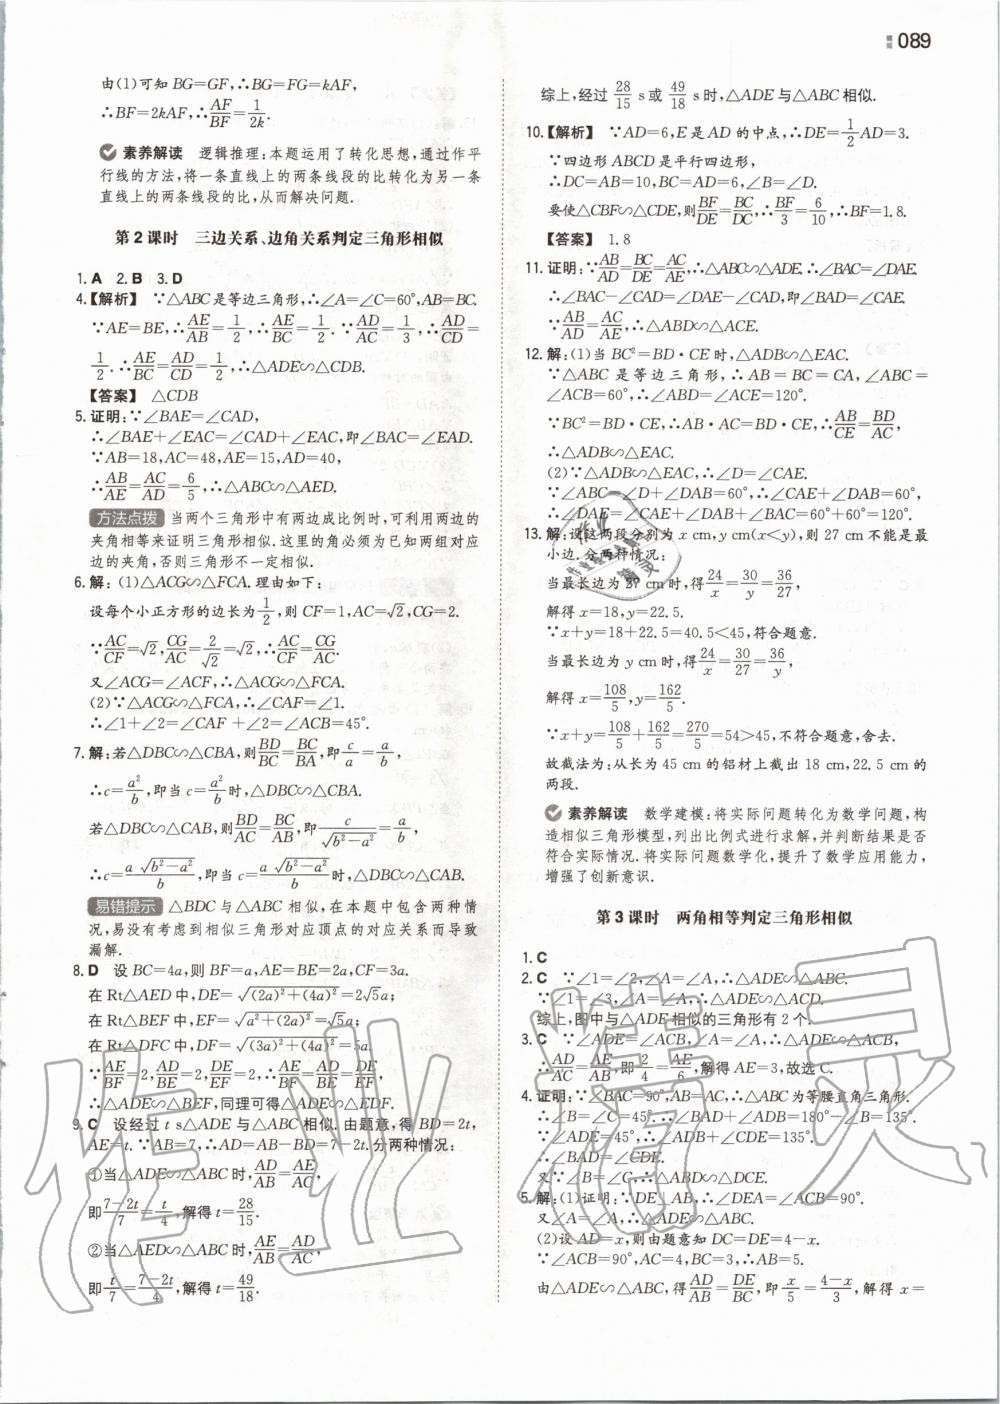 089
由(1)可知 BG=GF,∴BG=FG=kAF,
∴BF=2kAF,∴AF/BF=1/2k.
素养解读 逻辑推理:本题运用了转化思想,通过作平
行线的方法,将一条直线上的两条线段的比转化为另一条
直线上的两条线段的比,从而解决问题.
第2课时 三边关系、边角关系判定三角形相似
1. A 2. B 3. D
4.【解析】 ∵△ABC是等边三角形,∴∠A=∠C=60°,AB=BC.
∵AE=BE,∴AE/AB=1/2,∴AE/BC=1/2.∵AD/AC=1/3,∴AD/CD=
1/2.∴AE/BC=AD/CD=1/2,∴△ADE∽△CDB.
【答案】 △CDB
5. 证明:∵∠BAE=∠CAD,
∴∠BAE+∠EAC=∠CAD+∠EAC,即∠BAC=∠EAD.
∵AB=18,AC=48,AE=15,AD=40,
∴AB/AE=AC/AD=6/5,∴△ABC∽△AED.
方法点拨 当两个三角形中有两边成比例时,可利用两边的
夹角相等来证明三角形相似.这里的角必须为已知两组对应
边的夹角,否则三角形不一定相似.
6. 解:(1)△ACG∽△FCA.理由如下:
设每个小正方形的边长为1/2,则CF=1,AC=√2,CG=2.
∵AC/CF=√2,CG/AC=2/√2=√2,∴AC/CF=CG/AC.
又∠ACG=∠ACF,∴△ACG∽△FCA.
(2)∵△ACG∽△FCA,∴∠CAF=∠1.
∴∠1+∠2=∠CAF+∠2=∠ACB=45°.
7. 解:若△DBC∽△CBA,则BD/BC=BC/BA,即c/a=a/b,
∴c=a²/b,即当c=a²/b时,△DBC∽△CBA.
若△DBC∽△CAB,则BD/AC=BC/AB,即c/√(b²-a²)=a/b,
∴c=a√(b²-a²)/b,即当c=a√(b²-a²)/b时,△DBC∽△CAB.
易错提示 △BDC与△ABC相似,在本题中包含两种情
况,易没有考虑到相似三角形对应顶点的对应关系而导致
漏解.
8. D 设BC=4a,则BF=a,AE=BE=2a,CF=3a.
在Rt△AED中,DE=√((2a)²+(4a)²)=2√5a;
在Rt△BEF中,EF=√(a²+(2a)²)=√5a;
在Rt△DFC中,DF=√((3a)²+(4a)²)=5a.
∵AE/BF=2,AD/BE=2,DE/EF=2,∴AE/BF=AD/BE=DE/EF,
∴△ADE∽△BEF,同理可得△ADE∽△EDF.
9. C 设经过t s△ADE与△ABC相似.由题意,得BD=2t,
AE=t.∵AB=7,∴AD=AB-BD=7-2t.分两种情况:
①当△ADE∽△ABC时,AD/AB=AE/AC,
即(7-2t)/7=t/4,解得t=28/15.
②当△AED∽△ABC时,AE/AB=AD/AC,
即t/7=(7-2t)/4,解得t=49/18.
综上,经过28/15 s或49/18 s时,△ADE与△ABC相似.
10.【解析】 ∵AD=6,E是AD的中点,∴DE=1/2AD=3.
∵四边形ABCD是平行四边形,
∴DC=AB=10,BC=AD=6,∠B=∠D.
要使△CBF∽△CDE,则BF/DE=BC/DC,∴BF/3=6/10,∴BF=1.8.
【答案】 1.8
11. 证明:∵AB/AD=BC/DE=AC/AE,∴△ABC∽△ADE.∴∠BAC=∠DAE.
∴∠BAC-∠CAD=∠DAE-∠CAD,即∠BAD=∠CAE.
∵AB/AD=AC/AE,∴△ABD∽△ACE.
12. 解:(1)当BC²=BD·CE时,△ADB∽△EAC.
∵△ABC是等边三角形,∴AB=BC=CA,∠ABC=
∠ACB=60°,∴∠ABD=∠ACE=120°.
∵BC²=BD·CE,∴AB·AC=BD·CE,∴AB/CE=BD/AC,
∴△ADB∽△EAC.
(2)∵△ADB∽△EAC,∴∠D=∠CAE.
∵∠ABC=∠D+∠DAB=60°,∴∠CAE+∠DAB=60°,
∴∠DAE=∠CAE+∠DAB+∠BAC=60°+60°=120°.
13. 解:设这两段分别为x cm,y cm(x<y),则27 cm不能是最
小边.分两种情况:
当最长边为27 cm时,得24/x=30/y=36/27,
解得x=18,y=22.5.
∵x+y=18+22.5=40.5<45,符合题意.
当最长边为y cm时,得24/x=30/27=36/y,
解得x=108/5,y=162/5.
∵x+y=108/5+162/5=270/5=54>45,不符合题意,舍去.
故截法为:从长为45 cm的铝材上截出18 cm,22.5 cm的
两段.
素养解读 数学建模:将实际问题转化为数学问题,构
造相似三角形模型,列出比例式进行求解,并判断结果是否
符合实际情况.将实际问题数学化,提升了数学应用能力,
增强了创新意识.
第3课时 两角相等判定三角形相似
1. C
2. C ∵∠1=∠2,∠A=∠A,∴△ADE∽△ABC.
∵∠1=∠3,∠A=∠A,∴△ADE∽△ACD.
综上,图中与△ADE相似的三角形有2个.
3. C ∵∠ADE=∠ACB,∠A=∠A,∴△ADE∽△ACB,
∴AD/AC=AE/AB,即2/4=AE/6,解得AE=3,故选C.
4. 证明:∵∠BAC=90°,AB=AC,∴△ABC为等腰直角三角形.
∴∠B=∠C=45°,∴∠BAD+∠ADB=180°-∠B=135°.
∵∠ADE=45°,∴∠ADB+∠CDE=135°.
∴∠BAD=∠CDE.
又∵∠B=∠C,∴△ABD∽△DCE.
5. 解:(1)证明:∵DE⊥AB,∴∠DEA=∠ACB=90°.
又∠A=∠A,∴△ADE∽△ABC.
(2)设AD=x,则由题意知DC=DE=4-x.
∵∠ACB=90°,AC=4,BC=3,∴AB=5.
由△ADE∽△ABC,得AD/AB=DE/BC,即x/5=(4-x)/3,解得x=
作业精灵